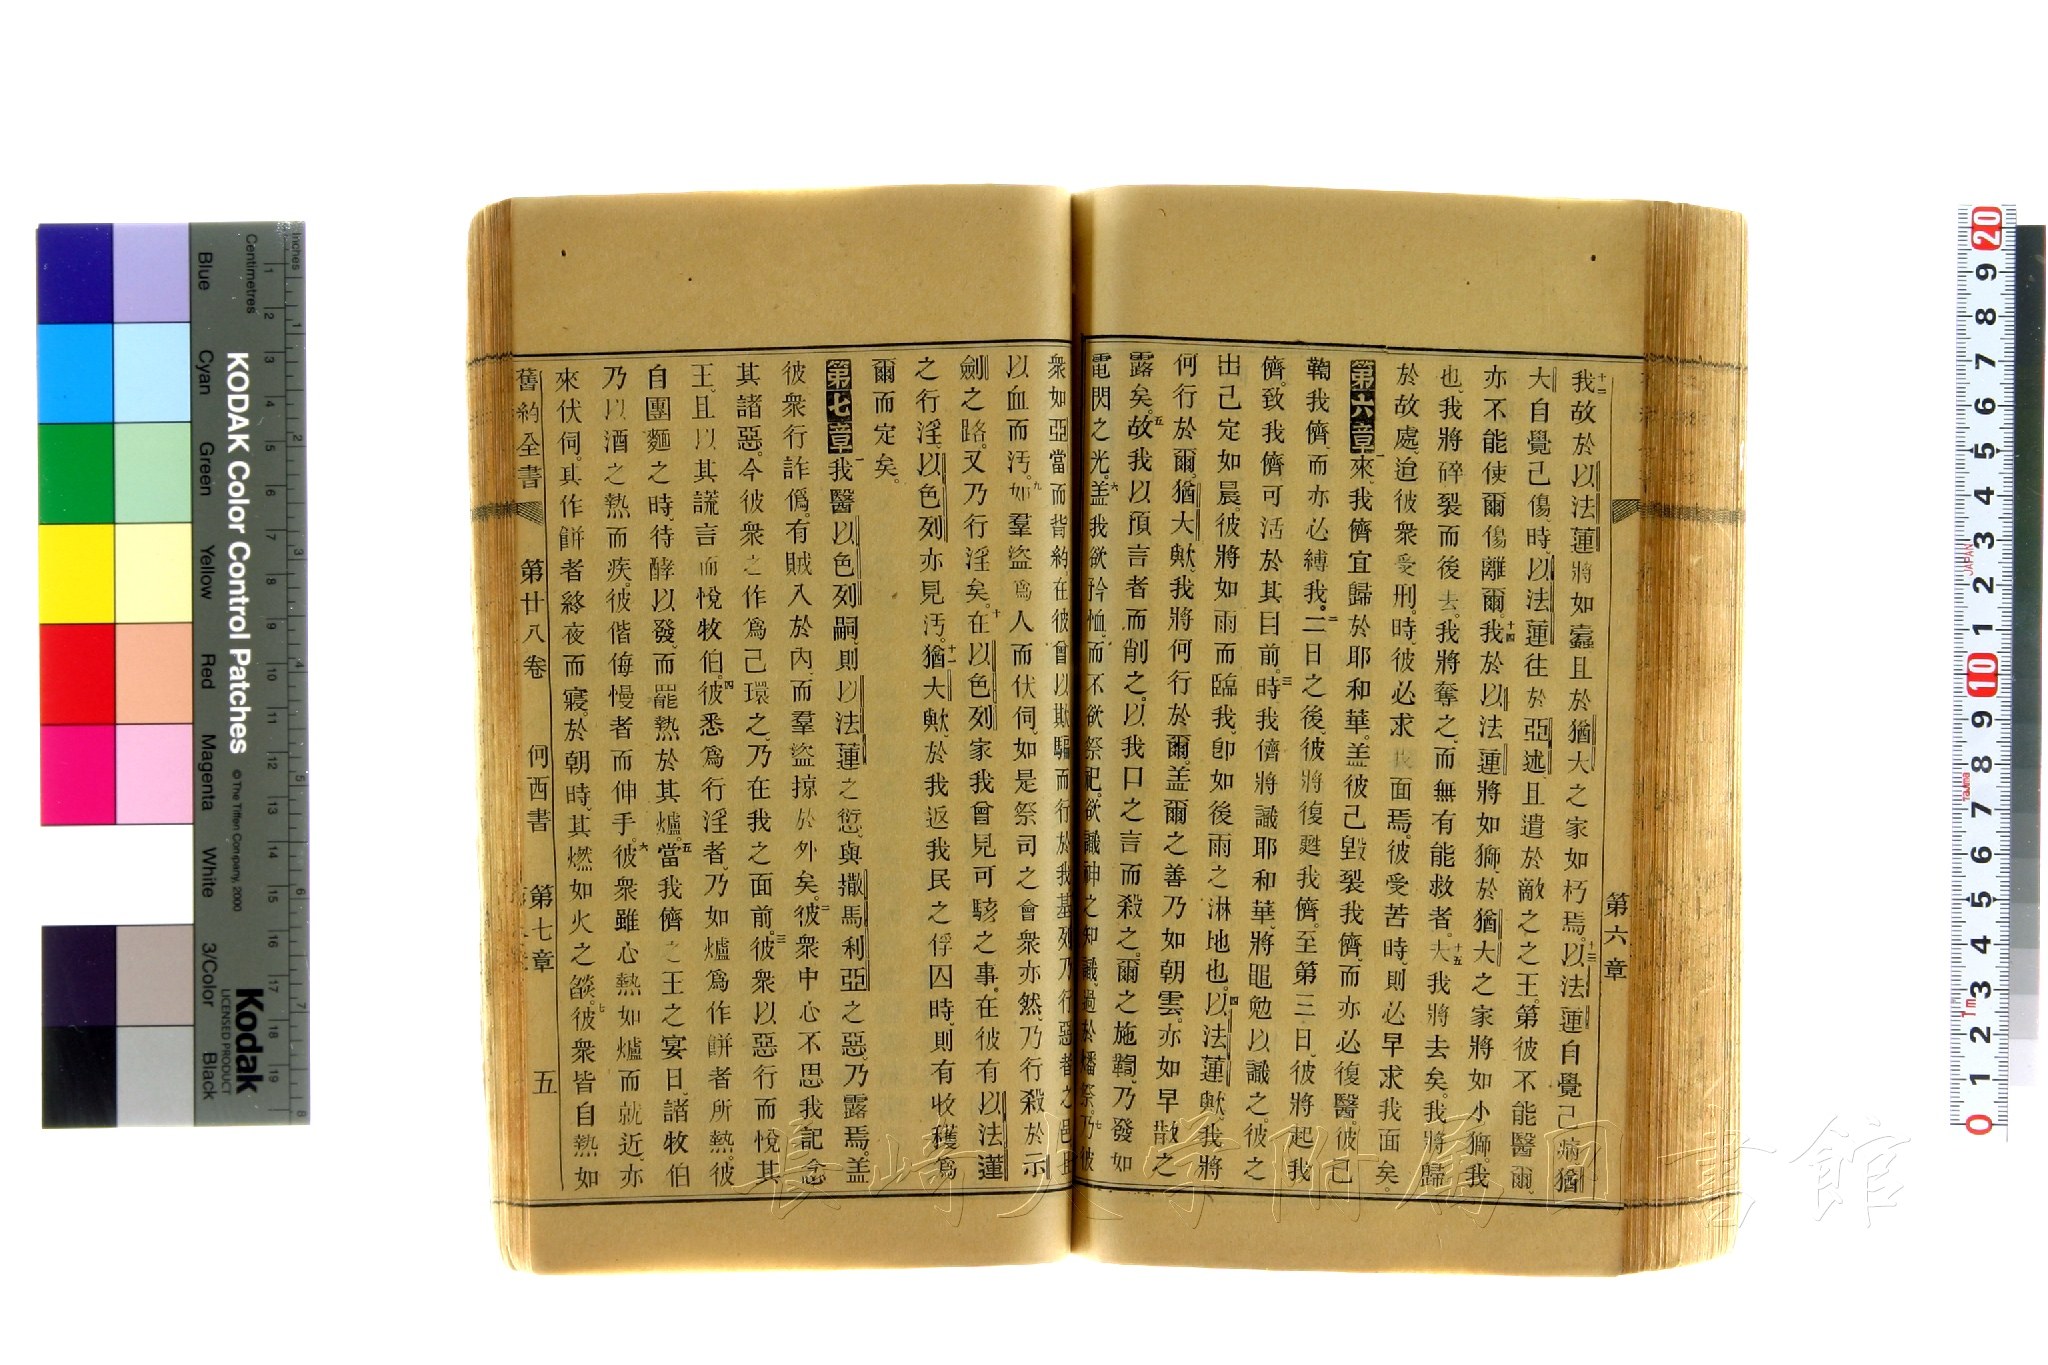 第六章
十二我故於以法蓮將如蠧且於猶大之家如朽焉十三以法蓮自覺己病猶
大自覺己傷時以法蓮往於亞述且遣於敵之之王第彼不能醫爾
亦不能使爾傷離爾十四我於以法蓮將如獅於猶大之家將如小獅我
也我將碎裂而後去我將奪之而無有能救者十五夫我將去矣我將歸
於故處迨彼衆受刑時彼必求我面焉彼受苦時則必早求我面矣
第六章一來我儕宜歸於耶和華盖彼己毀裂我儕而亦必復醫彼己
鞫我儕而亦必縛我二二日之後彼將復甦我儕至第三日彼將起我
儕致我儕可活於其目前三時我儕將識耶和華將黽勉以識之彼之
出己定如晨彼將如雨而臨我卽如後雨之淋地也四以法蓮歟我將
何行於爾猶大歟我將何行於爾盖爾之善乃如朝雲亦如早散之
露矣五故我以預言者而削之以我口之言而殺之爾之施鞫乃發如
電閃之光六盖我欲矜恤而不欲祭祀欲識神之知識過於燔祭七乃彼
衆如亞當而背約在彼曾以欺騙而行於我基列乃行惡者之邑且
以血而汚九如羣盜爲人而伏伺如是祭司之會衆亦然乃行殺於示
劍之路又乃行淫矣十在以色列家我曾見可駭之事在彼有以法蓮
之行淫以色列亦見汚十一猶大歟於我返我民之俘囚時則有收穫爲
爾而定矣
第七章一我醫以色列嗣則以法蓮之愆與撒馬利亞之惡乃露焉盖
彼衆行詐僞有賊入於內而羣盜掠於外矣二彼衆中心不思我記念
其諸惡今彼衆之作爲己環之乃在我之面前三彼衆以惡行而悅其
王且以其謊言而悅牧伯四彼悉爲行淫者乃如爐爲作餅者所熱彼
自團麵之時待酵以發而罷熱於其爐五當我儕之王之宴日諸牧伯
乃以酒之熱而疾彼偕侮慢者而伸手六彼衆雖心熱如爐而就近亦
來伏伺其作餅者終夜而寢於朝時其燃如火之燄七彼衆皆自熱如
舊約全書 第廿八卷 何西書 第七章 五
KODAK Color Control Patches
Kodak
LICENSED PRODUCT
©The Tiffen Company, 2000
Inches
Centimetres
Blue Cyan Green Yellow Red Magenta White 3/Color Black
1 2 3 4 5 6 7 8 9 10 11 12 13 14 15 16 17 18 19
1 2 3 4 5 6 7 8
20 9 8 7 6 5 4 3 2 1 10 9 8 7 6 5 4 3 2 1 0
JAPAN
Tajima
1m
長崎大学附属図書館